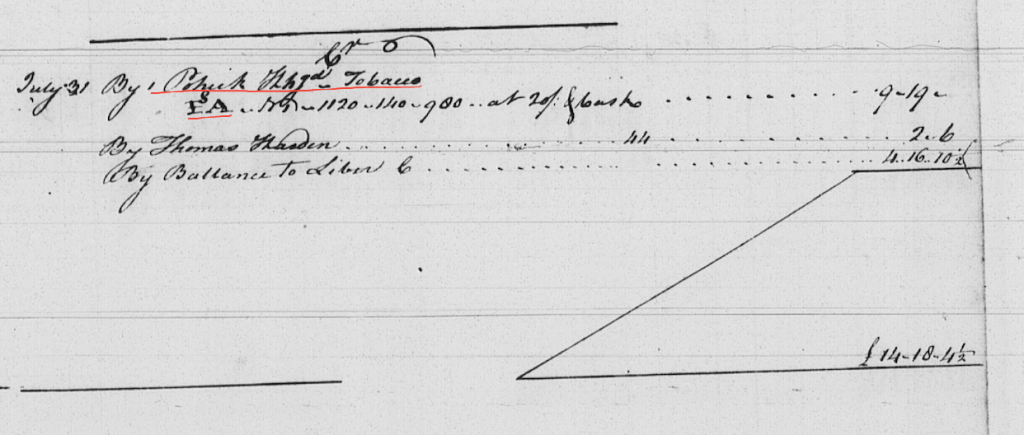 Cr
July 31 By 1 Pohick Hhgd Tobacco
ISA .. No 9 .. 1120 - 140 - 980 .. at 20/. & cask ........ 9 - 19 -
By Thomas Hasden ............ 44 ........ 2 .. 6
By Ballance To Liber C ............ 4 .. 16 .. 10½
£ 14 - 18 - 4½